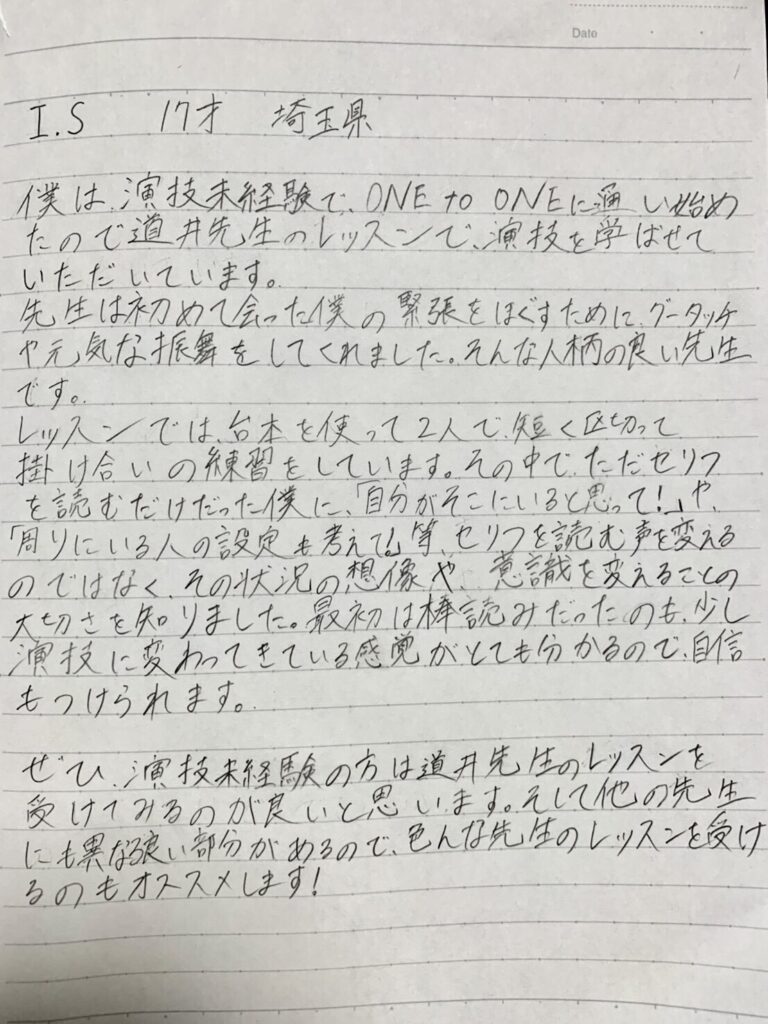 Date
I.S 17才 埼玉県
僕は、演技未経験で、ONE to ONEに通い始め
たので道井先生のレッスンで、演技を学ばせて
いただいています。
先生は初めて会った僕の緊張をほぐすために、グータッチ
や元気な振舞をしてくれました。そんな人柄の良い先生
です。
レッスンでは、台本を使って2人で、短く区切って
掛け合いの練習をしています。その中で、ただセリフ
を読むだけだった僕に、「自分がそこにいると思って!」や、
「周りにいる人の設定も考えて!」等、セリフを読む声を変える
のではなく、その状況の想像や、意識を変えることの
大切さを知りました。最初は棒読みだったのも、少し
演技に変わってきている感覚がとても分かるので、自信
もつけられます。
ぜひ、演技未経験の方は道井先生のレッスンを
受けてみるのが良いと思います。そして他の先生
にも異なる良い部分があるので、色んな先生のレッスンを受け
るのもオススメします!